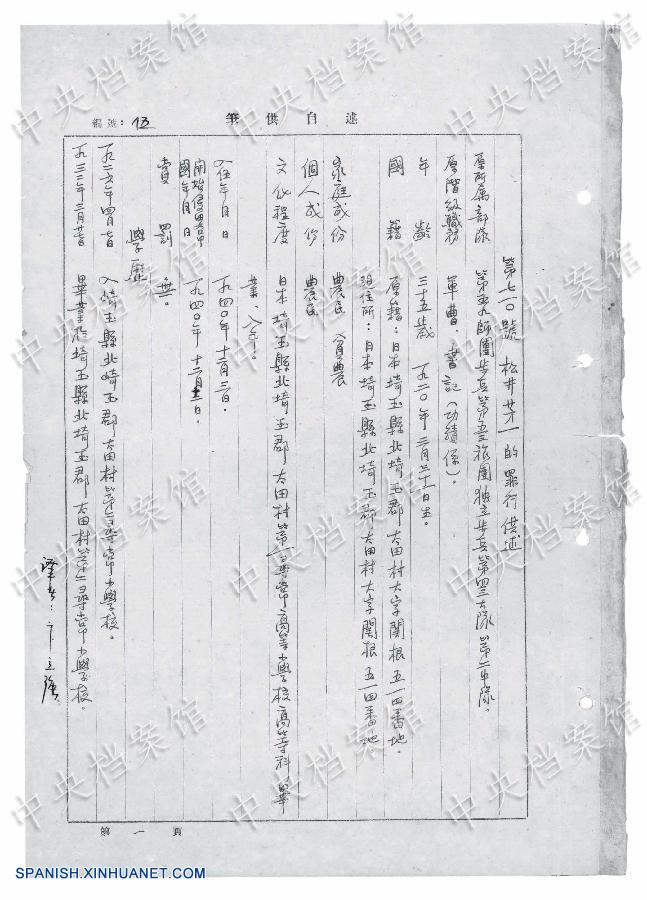 筆供自述
編號：13
第七一〇號 松井芳一的罪行供述
原所屬部隊 第五九師團步兵第五三旅團獨立步兵第四三大隊 第二中隊。
原階級職務 軍曹、書記（功績係）。
年齡 三十五歲 一九二〇年三月三十一日生。
國籍 原籍：日本埼玉縣北埼玉郡太田村大字關根五一四番地。
現住所：日本埼玉縣北埼玉郡太田村大字關根五一四番地
家庭成份 農民 貧農
個人成份 農民
文化程度 日本埼玉縣北埼玉郡太田村第二尋常高等小學校高等科 畢
業、八年。
入伍年月日 一九四〇年十二月三日。
開始侵略中國年月日 一九四〇年十二月 日。
賞罰 無。
學歷
一九二六年四月一日 入埼玉縣北埼玉郡太田村第二尋常小學校。
一九三二年三月廿 日 畢業於埼玉縣北埼玉郡太田村第二尋常小學校。
譯者：卞立強
第一頁
中央档案馆
SPANISH.XINHUANET.COM